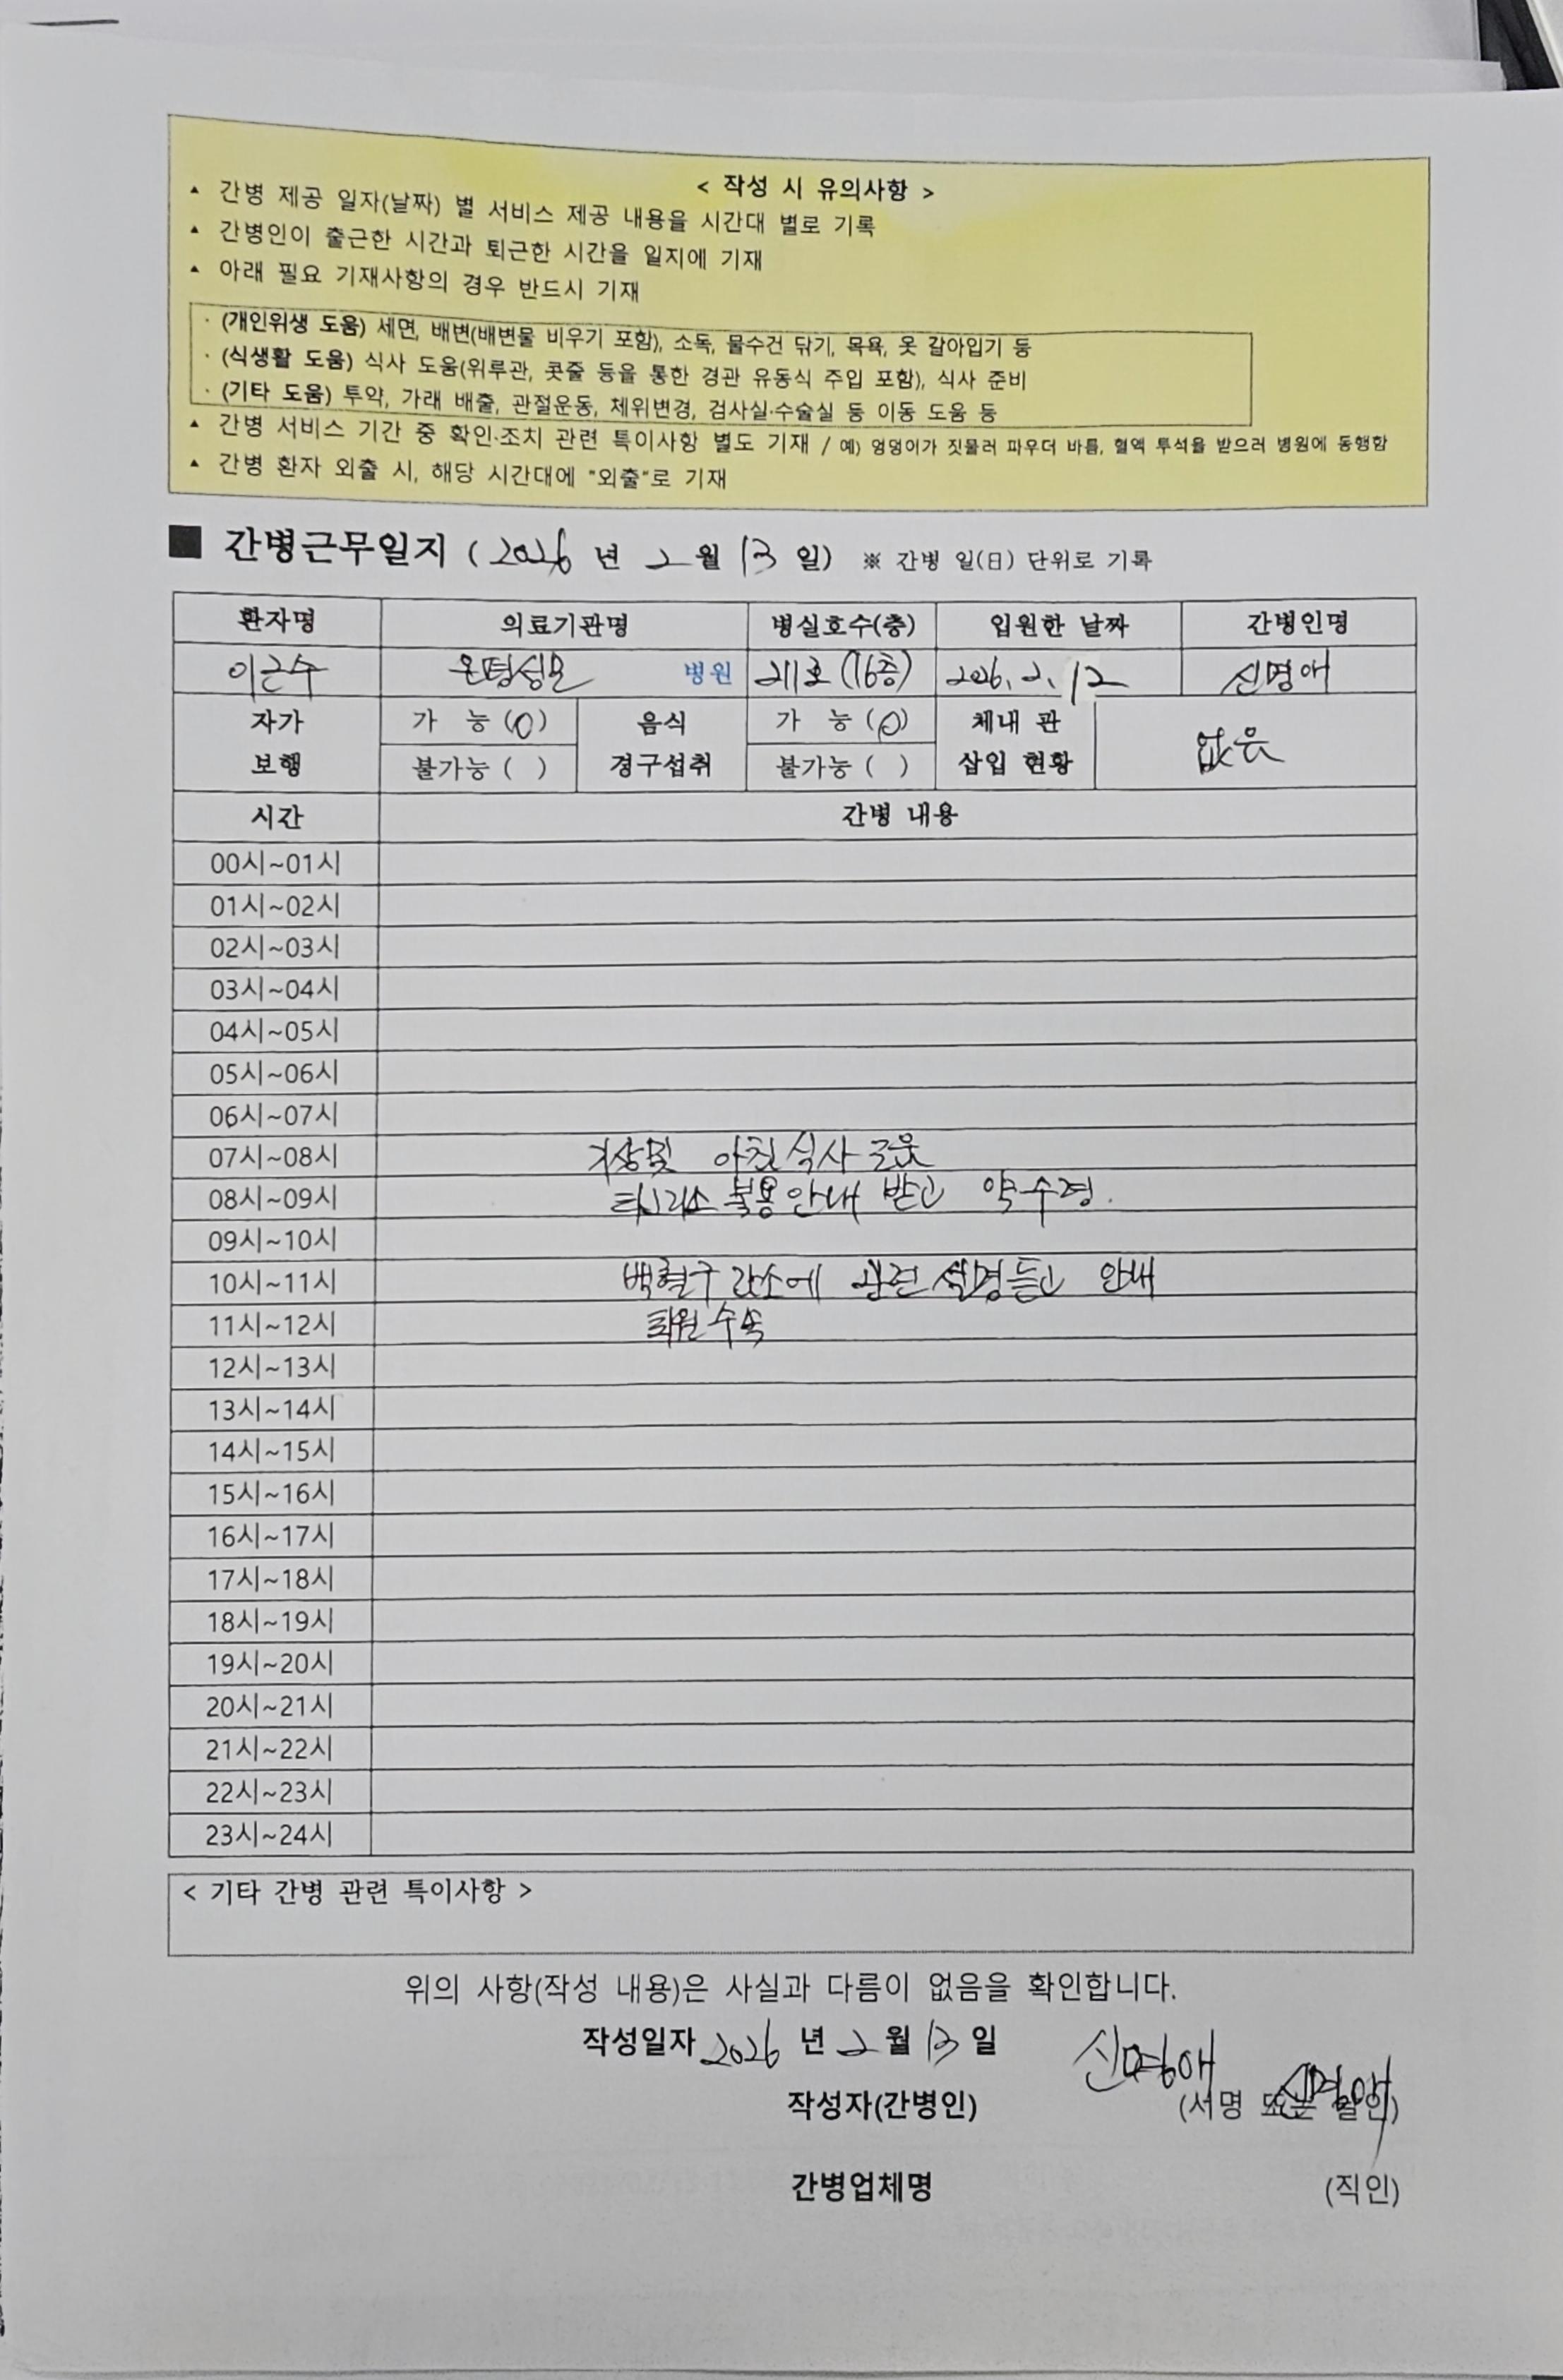 < 작성 시 유의사항 >
▲ 간병 제공 일자(날짜) 별 서비스 제공 내용을 시간대 별로 기록
▲ 간병인이 출근한 시간과 퇴근한 시간을 일지에 기재
▲ 아래 필요 기재사항의 경우 반드시 기재
· (개인위생 도움) 세면, 배변(배변물 비우기 포함), 소독, 물수건 닦기, 목욕, 옷 갈아입기 등
· (식생활 도움) 식사 도움(위루관, 콧줄 등을 통한 경관 유동식 주입 포함), 식사 준비
· (기타 도움) 투약, 가래 배출, 관절운동, 체위변경, 검사실·수술실 등 이동 도움 등
▲ 간병 서비스 기간 중 확인·조치 관련 특이사항 별도 기재 / 예) 엉덩이가 짓물러 파우더 바름, 혈액 투석을 받으러 병원에 동행함
▲ 간병 환자 외출 시, 해당 시간대에 "외출"로 기재
■ 간병근무일지 ( 2026 년 2 월 13 일) ※ 간병 일(日) 단위로 기록
환자명 의료기관명 병실호수(층) 입원한 날짜 간병인명
이근수 은평성모 병원 211호 (16층) 2026. 2. 12 신명애
자가 보행 가 능 (O) 불가능 ( ) 음식 경구섭취 가 능 (O) 불가능 ( ) 체내 관 삽입 현황 없음
시간 간병 내용
00시~01시
01시~02시
02시~03시
03시~04시
04시~05시
05시~06시
06시~07시
07시~08시 기상및 아침식사 도움
08시~09시 복용안내 받고 약수령.
09시~10시
10시~11시 백혈구 감소에 관련 설명듣고 안내
11시~12시 퇴원 수속
12시~13시
13시~14시
14시~15시
15시~16시
16시~17시
17시~18시
18시~19시
19시~20시
20시~21시
21시~22시
22시~23시
23시~24시
< 기타 간병 관련 특이사항 >
위의 사항(작성 내용)은 사실과 다름이 없음을 확인합니다.
작성일자 2026 년 2 월 13 일
작성자(간병인) 신명애 신명애 (서명 또는 날인)
간병업체명 (직인)